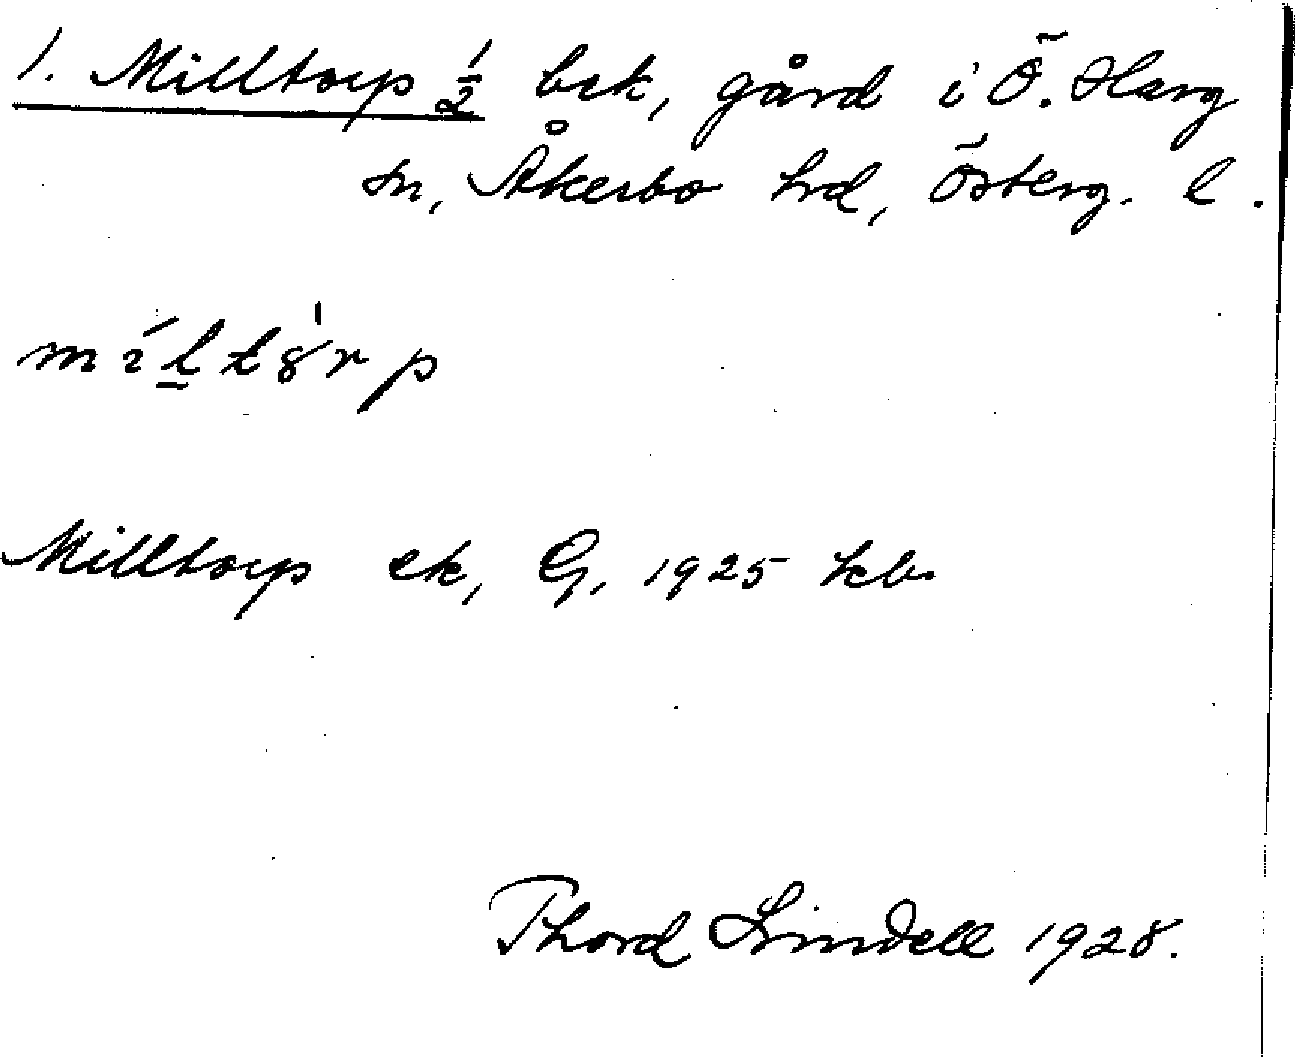 1. Milltorp ½ bsk, gård i Ö. Harg
sn, Åkerbo hrd, Österg. l.
mı́ḻtȣ̍rp
Milltorp ek, G, 1925 kb.
Thord Lindell 1928.